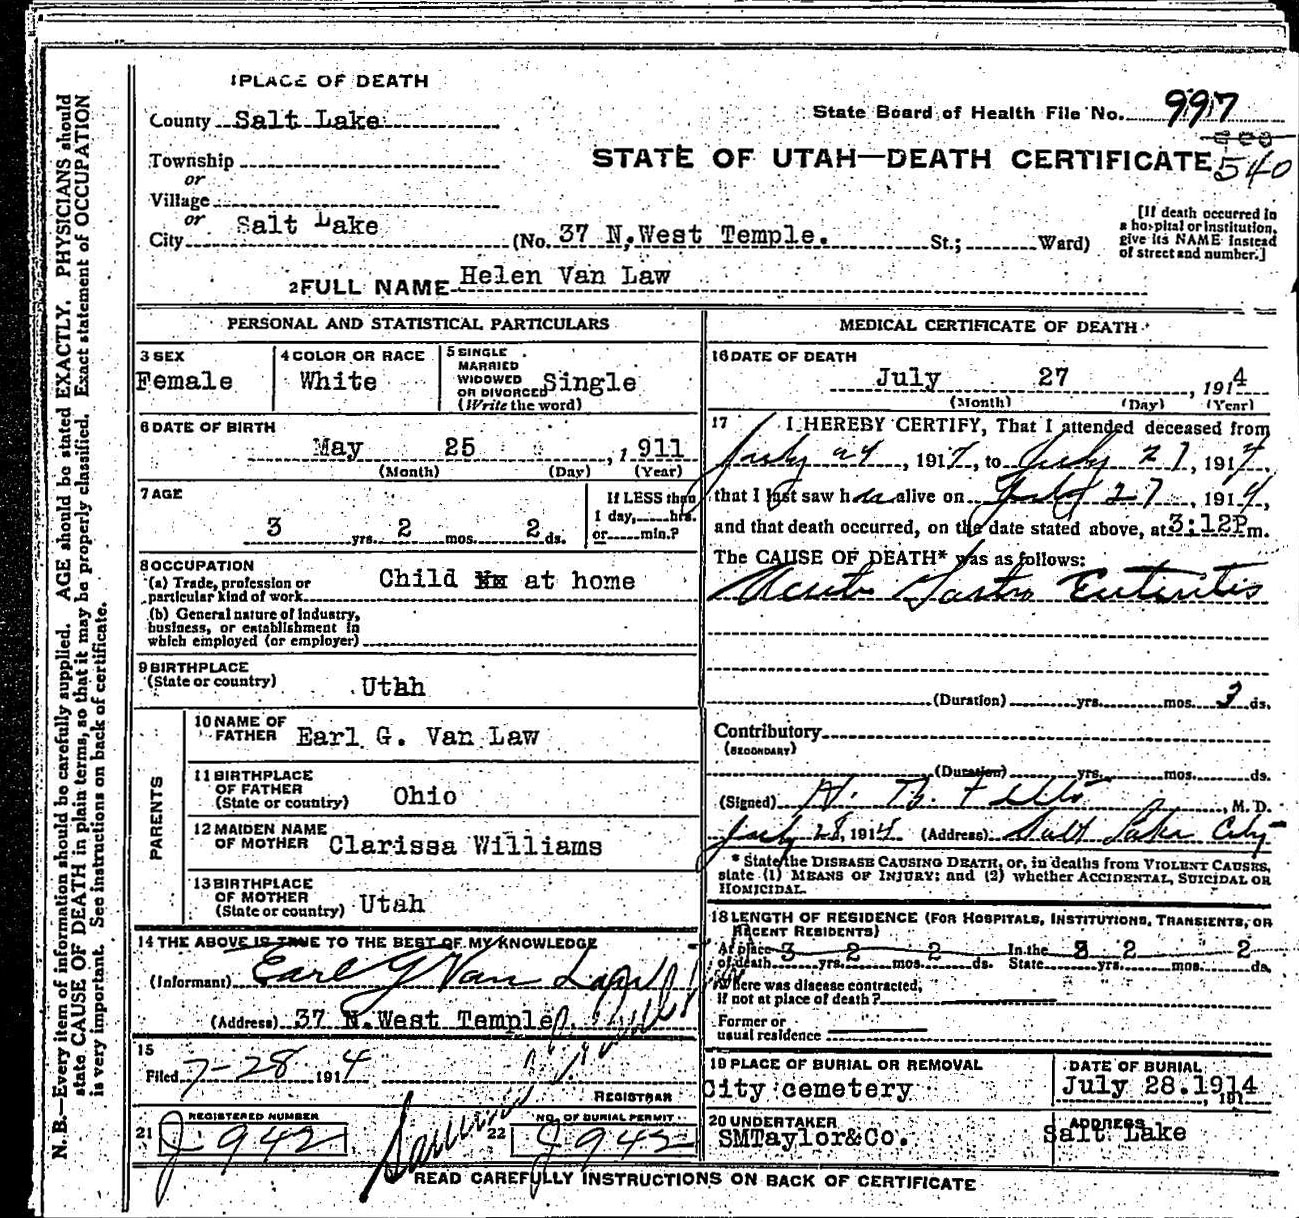 1 PLACE OF DEATH
County Salt Lake
State Board of Health File No. 997
Township
540
STATE OF UTAH—DEATH CERTIFICATE
or
Village
or
City Salt Lake (No. 37 N.West Temple. St.; Ward)
[If death occurred in
a hospital or institution,
give its NAME instead
of street and number.]
2 FULL NAME Helen Van Law
PERSONAL AND STATISTICAL PARTICULARS
3 SEX
Female
4 COLOR OR RACE
White
5 SINGLE
MARRIED
WIDOWED
OR DIVORCED
(Write the word)
Single
6 DATE OF BIRTH
May 25, 1911
(Month) (Day) (Year)
7 AGE
3 yrs. 2 mos. 2 ds.
If LESS than
1 day, hrs.
or min.?
8 OCCUPATION
(a) Trade, profession or
particular kind of work Child at home
(b) General nature of industry,
business, or establishment in
which employed (or employer)
9 BIRTHPLACE
(State or country) Utah
PARENTS
10 NAME OF
FATHER Earl G. Van Law
11 BIRTHPLACE
OF FATHER
(State or country) Ohio
12 MAIDEN NAME
OF MOTHER Clarissa Williams
13 BIRTHPLACE
OF MOTHER
(State or country) Utah
14 THE ABOVE IS TRUE TO THE BEST OF MY KNOWLEDGE
(Informant) Earl G Van Law
(Address) 37 N.West Temple
15
Filed 7-28 1914
REGISTRAR
REGISTERED NUMBER
21 J 942
NO. OF BURIAL PERMIT
22 J 942
MEDICAL CERTIFICATE OF DEATH
16 DATE OF DEATH
July 27, 1914
(Month) (Day) (Year)
17 I HEREBY CERTIFY, That I attended deceased from
July 24, 1914, to July 27, 1914,
that I last saw her alive on July 27, 1914,
and that death occurred, on the date stated above, at 3:12P m.
The CAUSE OF DEATH* was as follows:
Acute Gastro Enteritis
(Duration) yrs. mos. 3 ds.
Contributory
(SECONDARY)
(Duration) yrs. mos. ds.
(Signed) M. D.
July 28, 1914 (Address) Salt Lake City
* State the DISEASE CAUSING DEATH, or, in deaths from VIOLENT CAUSES,
state (1) MEANS OF INJURY; and (2) whether ACCIDENTAL, SUICIDAL OR
HOMICIDAL.
18 LENGTH OF RESIDENCE (FOR HOSPITALS, INSTITUTIONS, TRANSIENTS, OR
RECENT RESIDENTS)
At place of death 3 yrs. 2 mos. 2 ds. In the State 3 yrs. 2 mos. 2 ds.
Where was disease contracted,
if not at place of death?
Former or
usual residence
19 PLACE OF BURIAL OR REMOVAL
City cemetery
DATE OF BURIAL
July 28.1914, 191
20 UNDERTAKER
SMTaylor&Co.
ADDRESS
Salt Lake
READ CAREFULLY INSTRUCTIONS ON BACK OF CERTIFICATE
N. B.—Every item of information should be carefully supplied. AGE should be stated EXACTLY. PHYSICIANS should
state CAUSE OF DEATH in plain terms, so that it may be properly classified. Exact statement of OCCUPATION
is very important. See instructions on back of certificate.